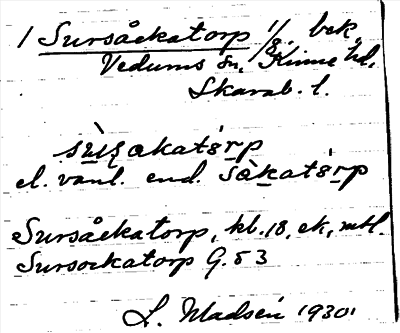 1 Sursåckatorp 1/8, bek,
Vedums sn, Kinne hd,
Skarab. l.
sùı̨ʂækatórp
el. vanl. end. sækatórp
Sursåckatorp, kl. 18, ek, mtl.
Sursockatorp G. 83
L. Madsén 1930